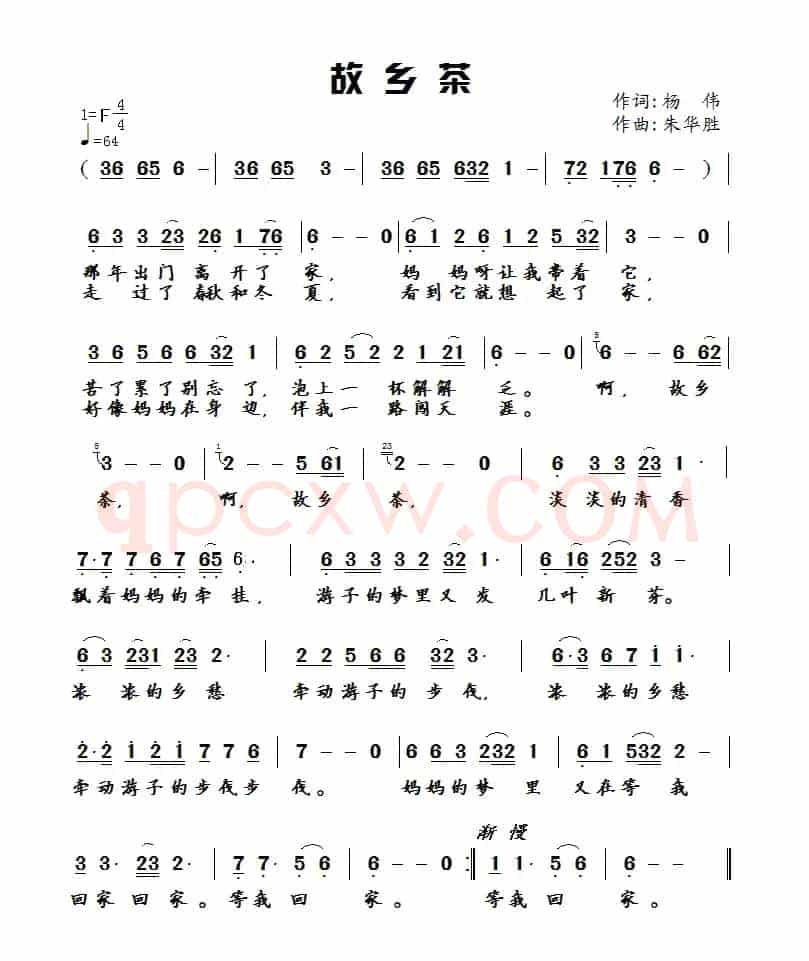 故乡茶
1=F 4/4
作词:杨 伟
♩=64
作曲:朱华胜
( 36 65 6 - | 36 65 3 - | 36 65 632 1 - | 72 176 6 - )
6 3 3 23 26 1 76 | 6 - - 0 | 6 1 2 6 1 2 5 32 | 3 - - 0 |
那年出门 离开了 家, 妈 妈呀让我带着 它,
走 过了 春秋和冬 夏, 看到它就想 起了 家,
3 6 5 6 6 32 1 | 6 2 5 2 2 1 21 | 6 - - 0 | 5 6 - - 6 62 |
苦了累了别忘 了, 泡上一 杯解解 乏。 啊, 故乡
好像妈妈在身 边, 伴我一 路闯天 涯。
5 3 - - 0 | 1 2 - - 5 61 | 23 2 - - 0 | 6 3 3 23 1· |
茶, 啊, 故乡 茶, 淡 淡的清 香
qpcxw.COM
7·7 7 6 7 65 6· | 6 3 3 3 2 32 1· | 6 16 252 3 - |
飘着妈妈的牵 挂, 游子的梦里又 发 几叶 新 芽。
6 3 231 23 2· | 2 2 5 6 6 32 3· | 6·3 6 7 i i· |
浓 浓的乡 愁 牵动游子的 步 伐, 浓 浓的乡愁
2·2 1 2 1 7 7 6 | 7 - - 0 | 6 6 3 232 1 | 6 1 532 2 - |
牵动游子的步伐步 伐。 妈妈的梦 里 又在等 我
渐 慢
3 3· 23 2· | 7 7· 5 6 | 6 - - 0 :|| 1 1· 5 6 | 6 - - ||
回家 回 家。 等我 回 家。 等我 回 家。